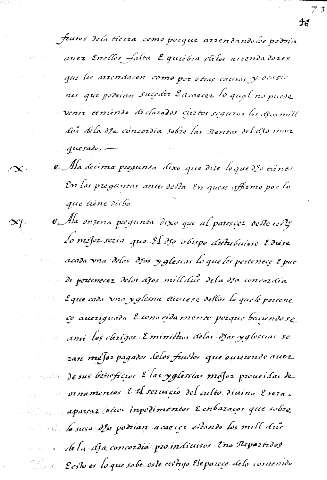 73
frutos dela tierra como porque arrendandolos podria
aver Enellos falta E quiebra delos arrendadores
que los arrendasen como por otras causas y ocasio
nes que podrian suçeder E acaeçer lo qual no puede
venir teniendo declarados çiertos seguros los
de la dha concordia sobre las Rentas del dho mar
quesado.
X. A la deçima pregunta dixo que dize lo que dho tiene
En las preguntas antes desta En que se affirmo por lo
que tiene dicho
XI. A la onzena pregunta dixo que al pareçer deste testigo
lo mejor seria que El dho obispo distribuiese E diese
a cada una delas dhas yglesias lo que les perteneçe E pue
de perteneçer delos dhos mill du° de la dha concordia
E que cada una yglesia tuviese dellos lo que le pertene
ce averiguada E conosçidamente porque haziendose
ansi los clerigos E ministros delas dhas yglesias se
ran mejor pagados delos frutos que huvieren aver
de sus benefiçios E las yglesias mejor proveidas de
ornamentos E El serviçio del culto divino E se ra
apartar otros inpedimentos E enbaraços que sobre
lo suso dho podrian acaeçer estando los mill du°
de la dha concordia proindivisos E no Repartidos
E esto es lo que sabe este testigo E le pareçe delo contenido